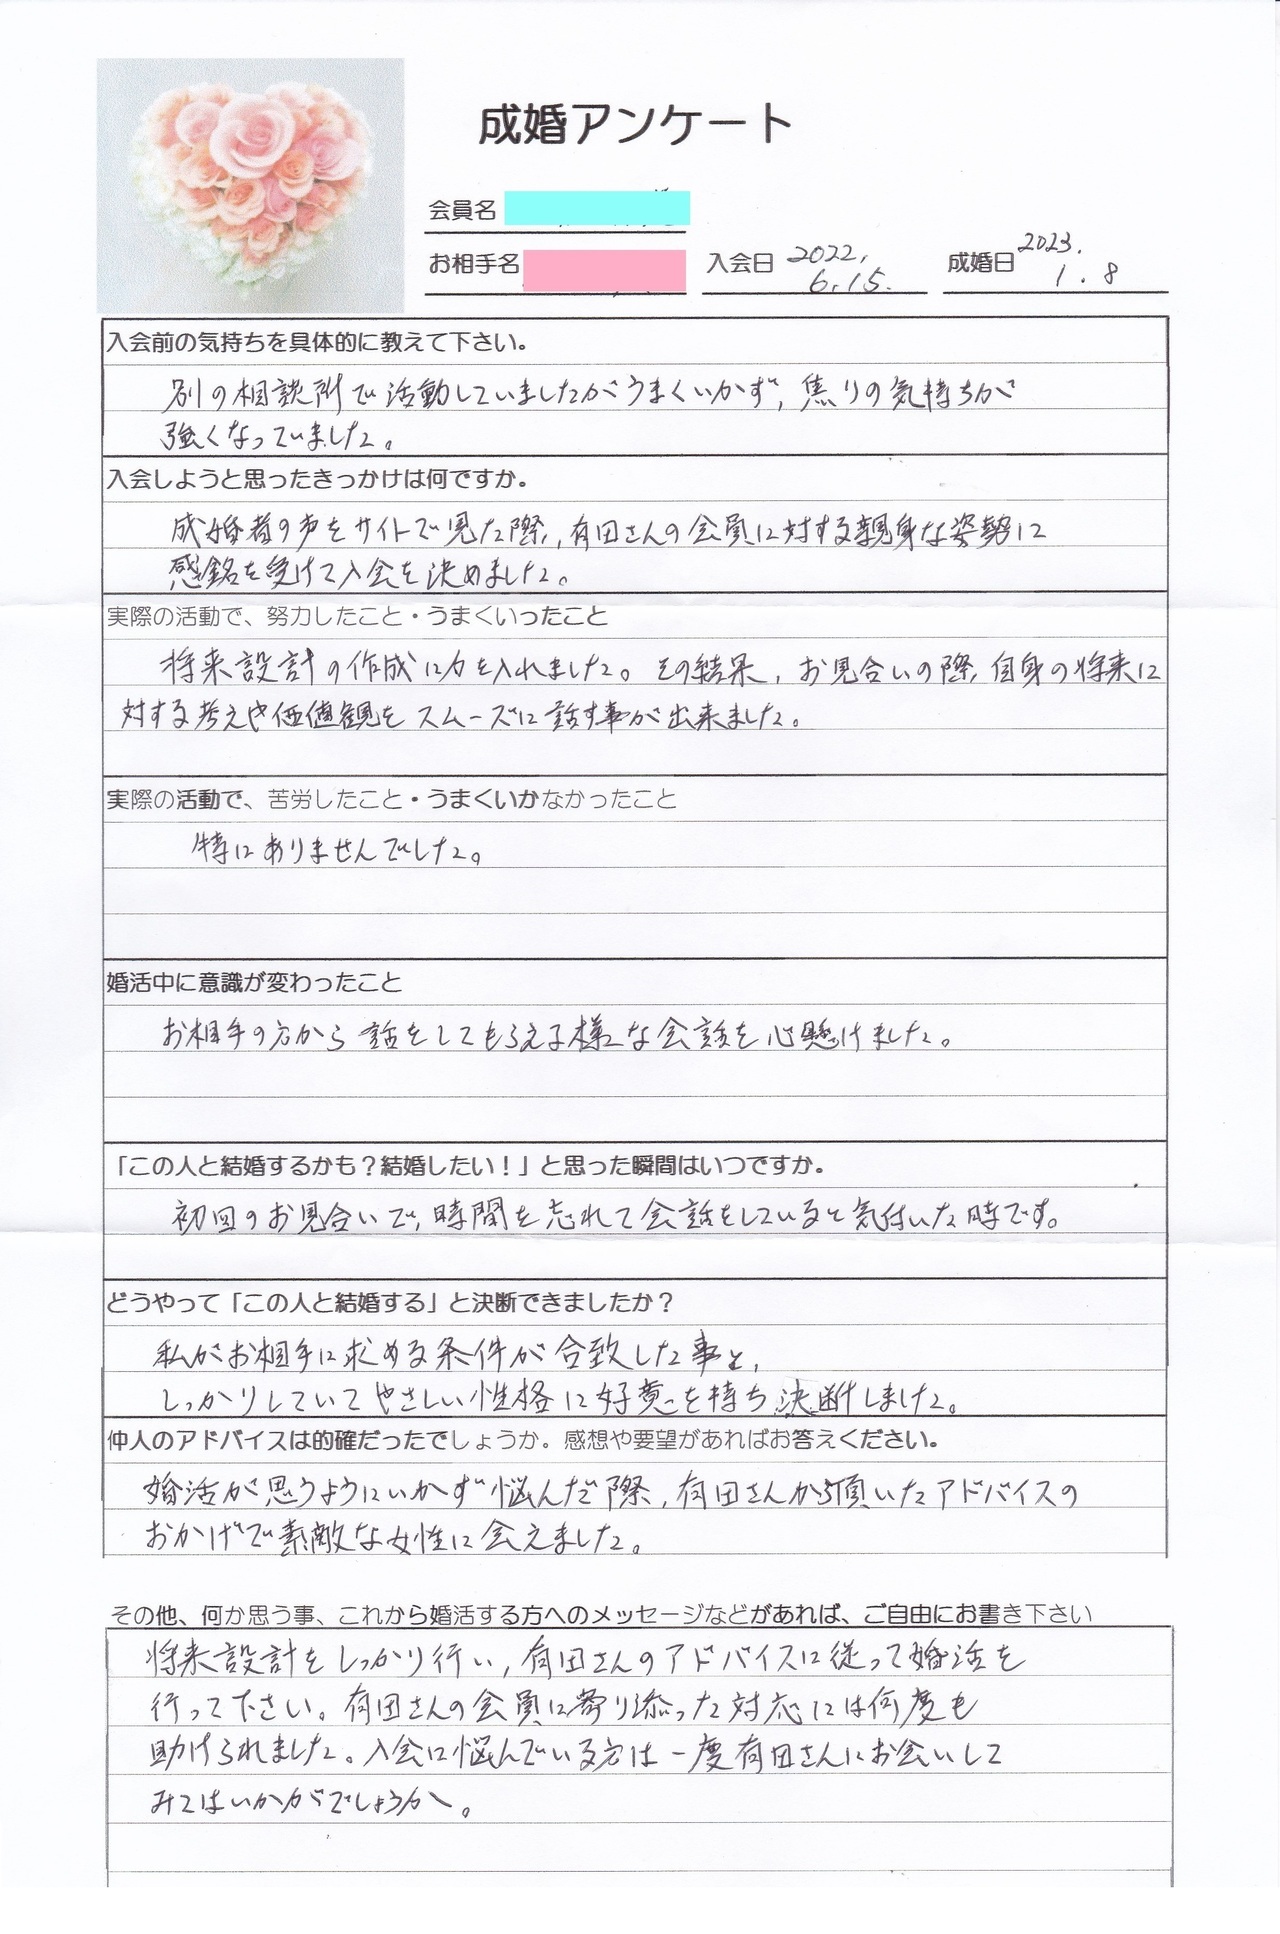 成婚アンケート
会員名
お相手名
入会日 2022. 6.15.
成婚日 2023. 1.8
入会前の気持ちを具体的に教えて下さい。
別の相談所で活動していましたがうまくいかず、焦りの気持ちが
強くなっていました。
入会しようと思ったきっかけは何ですか。
成婚者の声をサイトで見た際、有田さんの会員に対する親身な姿勢に
感銘を受けて入会を決めました。
実際の活動で、努力したこと・うまくいったこと
将来設計の作成に力を入れました。その結果、お見合いの際、自身の将来に
対する考えや価値観をスムーズに話す事が出来ました。
実際の活動で、苦労したこと・うまくいかなかったこと
特にありませんでした。
婚活中に意識が変わったこと
お相手の方から話をしてもらえる様な会話を心懸けました。
「この人と結婚するかも？結婚したい！」と思った瞬間はいつですか。
初回のお見合いで、時間を忘れて会話をしていると気付いた時です。
どうやって「この人と結婚する」と決断できましたか？
私がお相手に求める条件が合致した事と、
しっかりしていてやさしい性格に好意を持ち決断しました。
仲人のアドバイスは的確だったでしょうか。感想や要望があればお答えください。
婚活が思うようにいかず悩んだ際、有田さんから頂いたアドバイスの
おかげで素敵な女性に会えました。
その他、何か思う事、これから婚活する方へのメッセージなどがあれば、ご自由にお書き下さい
将来設計をしっかり行い、有田さんのアドバイスに従って婚活を
行って下さい。有田さんの会員に寄り添った対応には何度も
助けられました。入会に悩んでいる方は一度有田さんにお会いして
みてはいかがでしょうか。